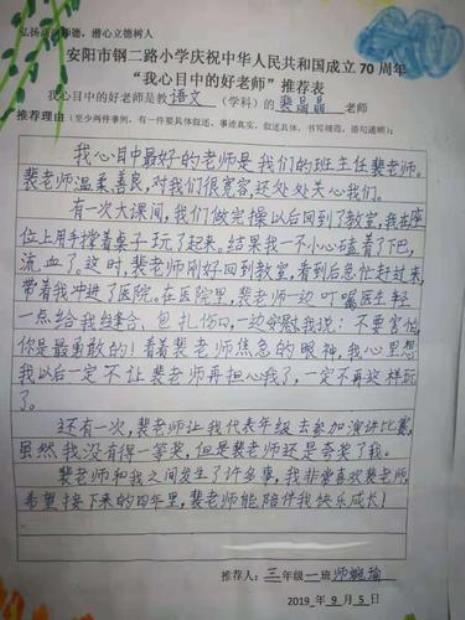 弘扬高尚师德，潜心立德树人
安阳市钢二路小学庆祝中华人民共和国成立 70 周年
“我心目中的好老师”推荐表
我心目中的好老师是教 语文 （学科）的 裴晶晶 老师
推荐理由（至少两件事例，有一件要具体叙述，事迹真实，叙述具体，书写规范，语句通顺）：
我心目中最好的老师是我们的班主任裴老师。
裴老师温柔善良，对我们很宽容，还处处关心我们。
有一次大课间，我们做完操以后回到了教室，我在座
位上用手撑着桌子玩了起来。结果我一不小心磕着了下巴，
流血了。这时，裴老师刚好回到教室，看到后急忙赶过来，
带着我冲进了医院。在医院里，裴老师一边叮嘱医生轻
一点给我缝合、包扎伤口，一边安慰我说：不要害怕，
你是最勇敢的！看着裴老师焦急的眼神，我心里想
我以后一定不让裴老师再担心我了，一定不再这样玩
了。
还有一次，裴老师让我代表年级去参加演讲比赛，
虽然我没有得一等奖，但是裴老师还是夸奖了我。
裴老师和我之间发生了许多事，我非常喜欢裴老师，
希望接下来的四年里，裴老师能陪伴我快乐成长！
推荐人：三年级一班 师婉瑜
2019 年 9 月 5 日